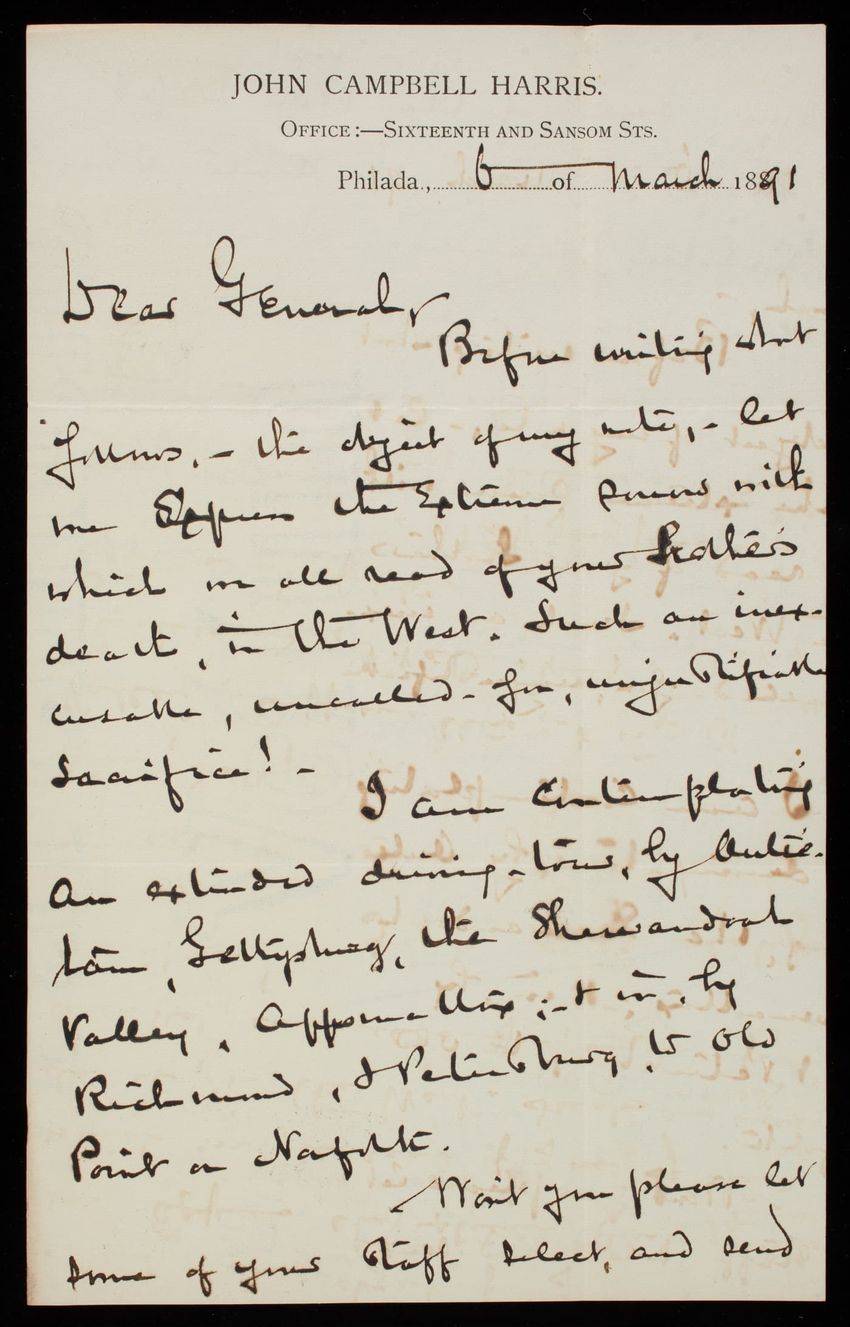 JOHN CAMPBELL HARRIS.
OFFICE :—SIXTEENTH AND SANSOM STS.
Philada., 6 of March 1891
Dear General,
Before writing what
follows, - the object of my note, - let
me Express the Extreme sorrow with
which we all read of your Brother's
death, in the West. Such an inex-
cusable, uncalled-for, unjustifiable
sacrifice! -
I am contemplating
an extended driving-tour, by Antie-
tam, Gettysburg, the Shenandoah
Valley, Appomattox ; - & in, by
Richmond, & Petersburg, to Old
Point or Norfolk.
Won't you please let
some of your Staff select, and send